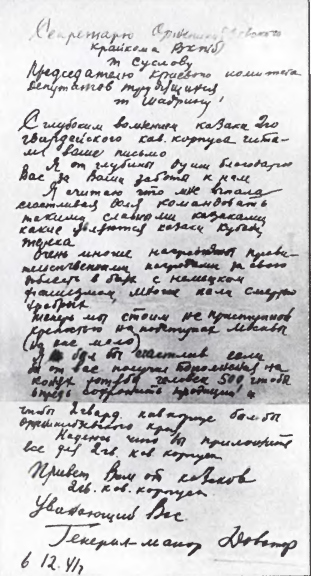 Секретарю Орджоникидзевского
крайкома ВКПб
т Суслову
Председателю краевого комитета
депутатов трудящихся
т Шадрину!
С глубоким волнением казаки 2го
гвардейского кав. корпуса чита-
ли ваше письмо
Я от глубины души благодарю
Вас за Ваши заботы к нам
Я считаю что мне выпала
счастливая доля командовать
такими славными казаками
какие являются казаки Кубани
Терека
Очень многие награждены прави-
тельственными наградами за свою
доблесть в боях с немецким
фашизмом, многие пали смертью
храбрых
Теперь мы стоим не приступной
крепостью на подступах Москвы
(но нас мало)
Я был бы счастлив если
бы от вас получил пополнения на
конях человек 500, чтобы
впредь сохранить традиции
чтобы 2 гвард. кав корпус был бы
орджоникидзевского края
Надеюсь что вы приложите
все для 2 гв. кав корпуса
Привет Вам от казаков
2 гв. кав. корпуса.
Уважающий Вас
Генерал-майор Доватор
6 12.41 г